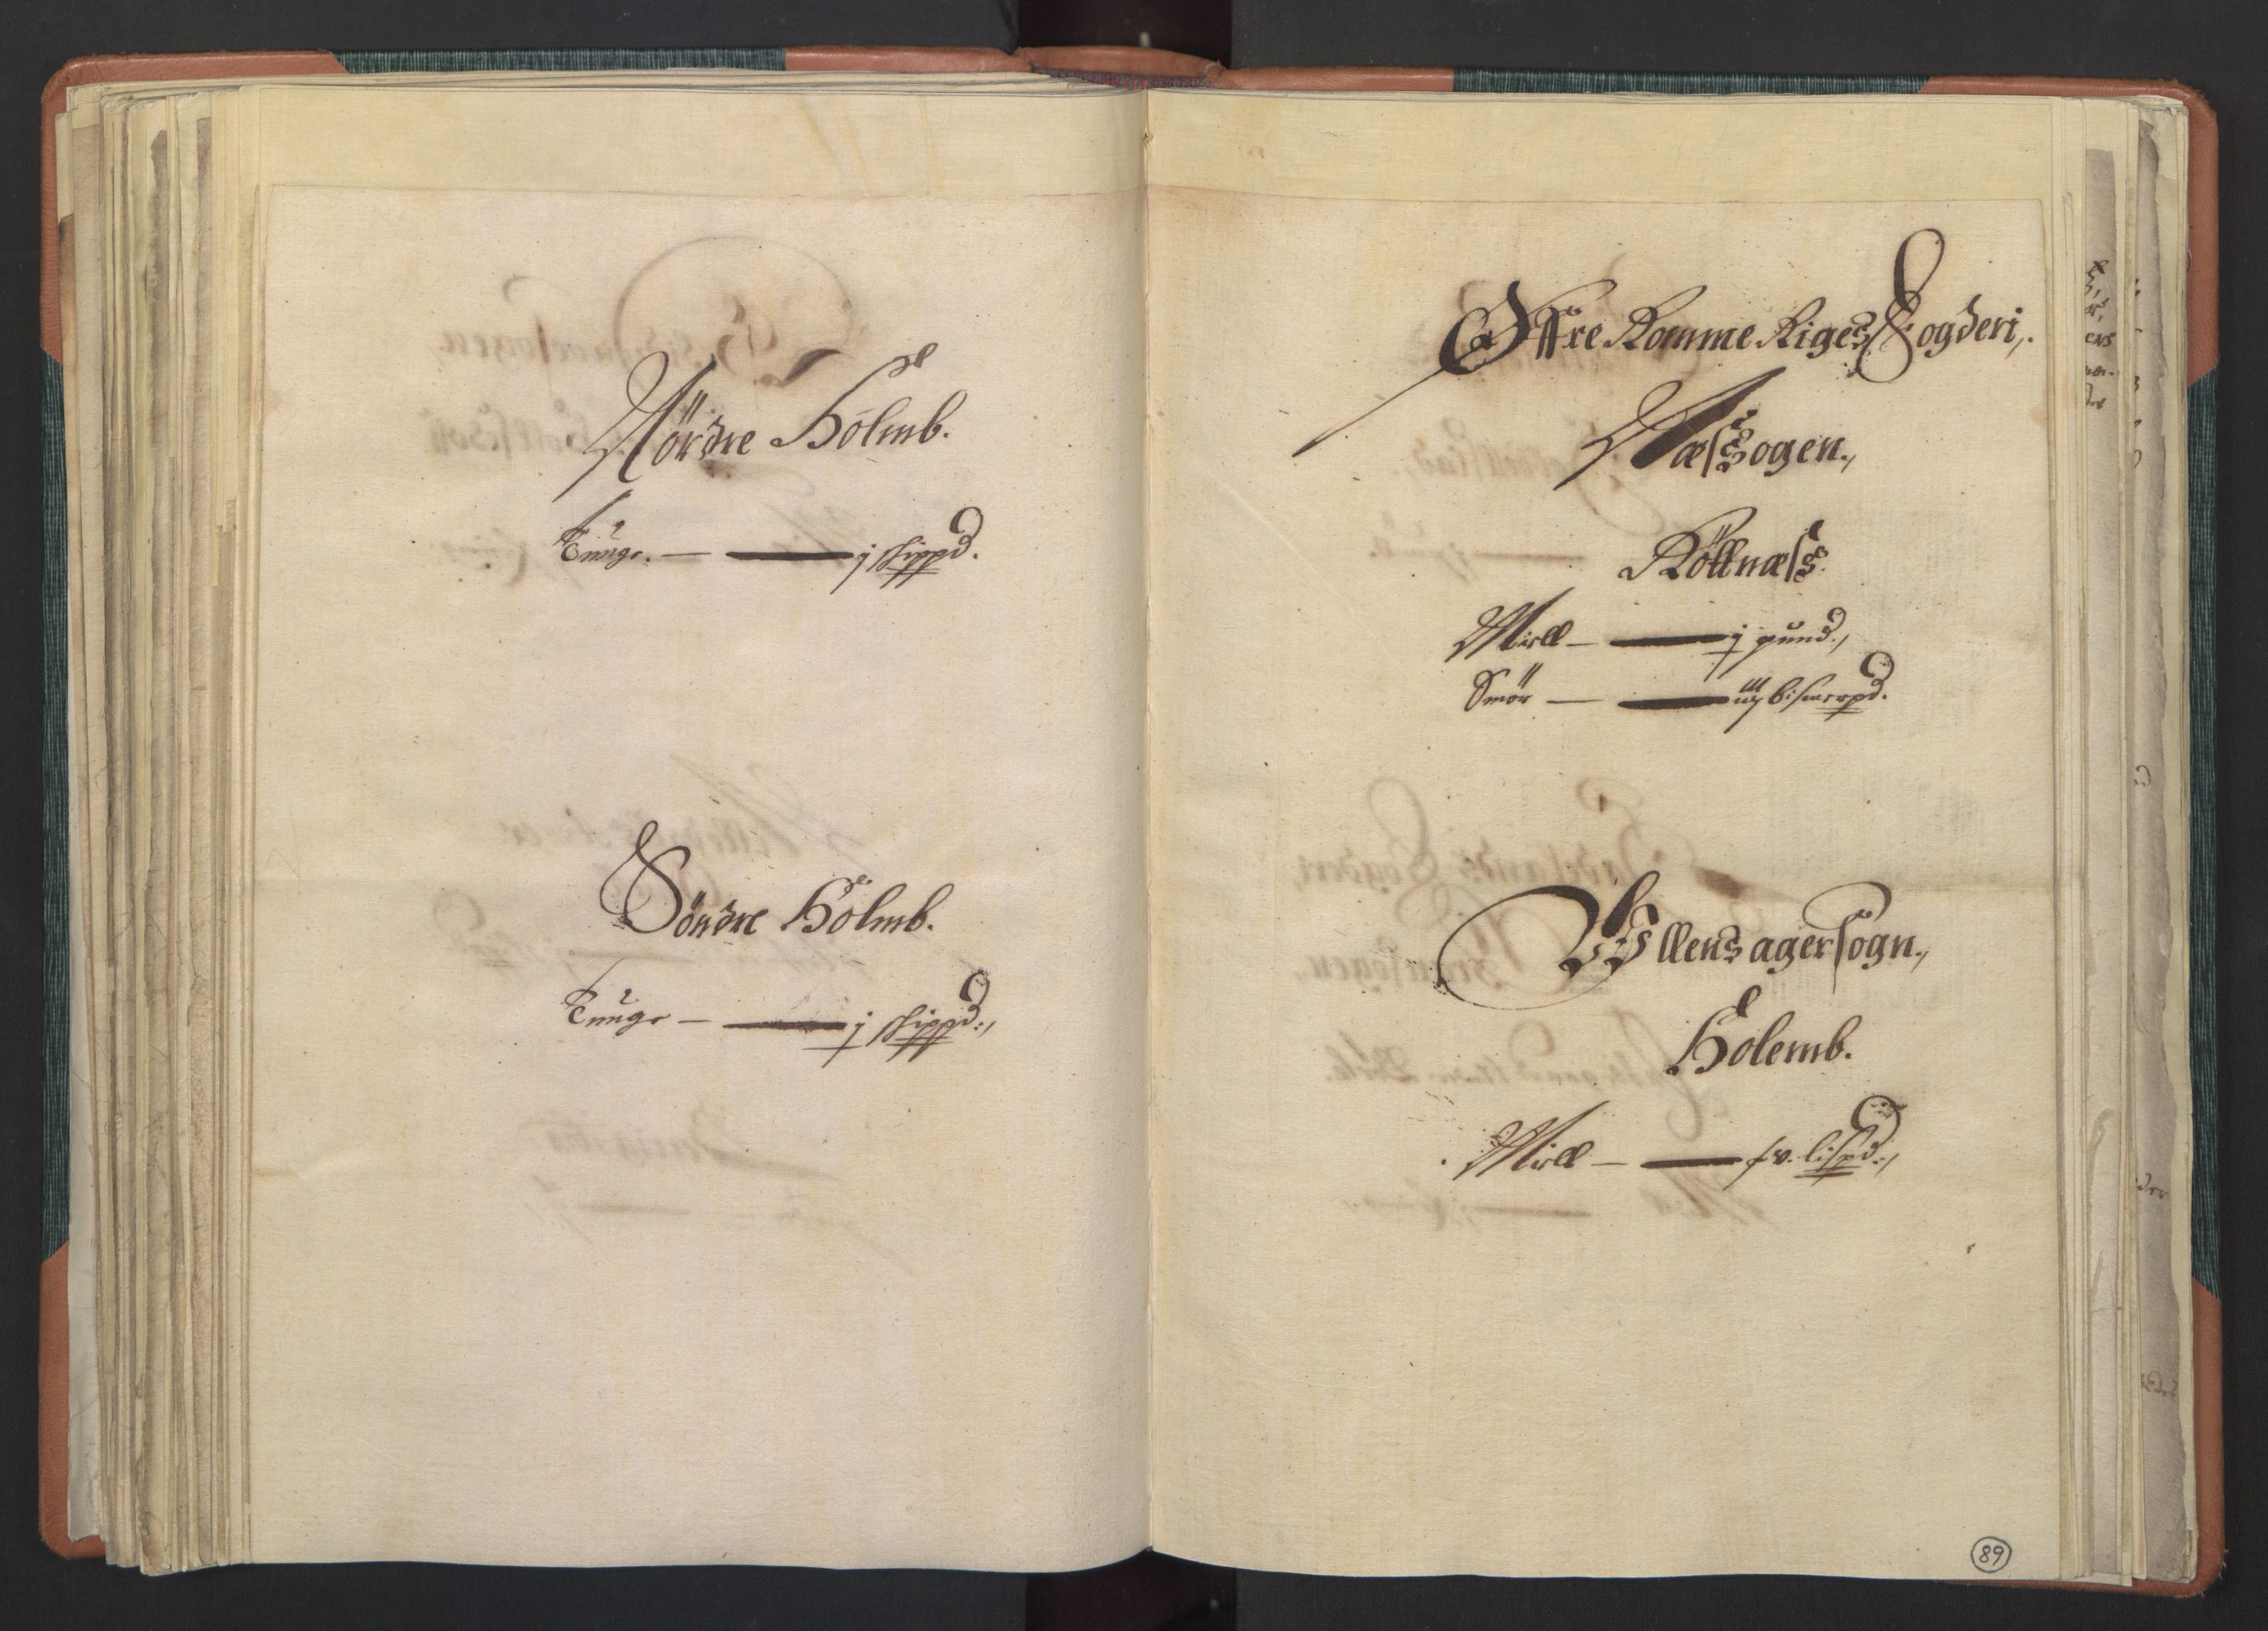 Nördre Hölmb.
Tunge. — j skippd.
Söndre Hölmb.
Tunge — j skippd:,
Öffre Romme Riges Fogderi,.
Næssogen.,
Röllnæss.
Miell — j pund.,
Smör — iij bismerpd.
Ullensagersogn.,
Holemb.
Miell — lispd:,
89